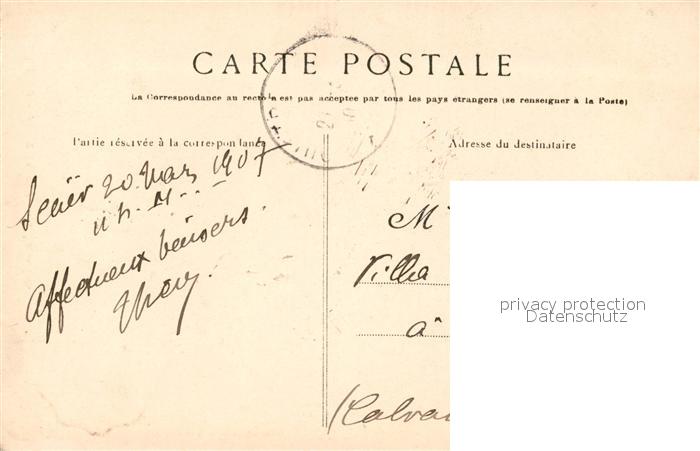 CARTE POSTALE
La Correspondance au recto n'est pas acceptee par tous les pays etrangers (se renseigner à la Poste)
Partie réservée à la correspondance
Adresse du destinataire
20 Mars 1907
Affectueux baisers.
M
Villa
à
(Calva
privacy protection
Datenschutz